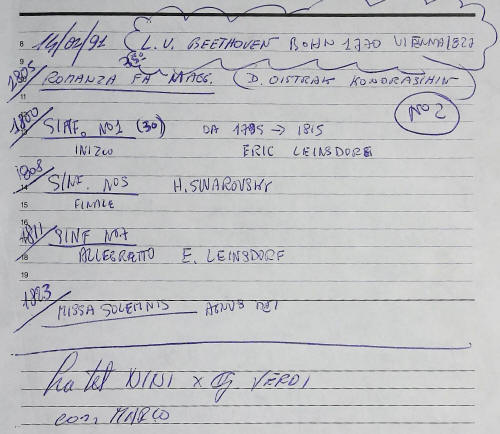 8 14/02/91 L. V. BEETHOVEN BOHN 1770 VIENNA 1827
9
1805 ROMANZA FA MAGG. D. OISTRAK KONDRASIHIN
11
No 2
1800 SINF. No1 (30) DA 1795 → 1815
INIZIO ERIC LEINSDORF
1808
14 SINF. No5 H. SWAROVSKY
15 FINALE
16
1811 SINF No7
18 ALLEGRETTO E. LEINSDORF
19
1823 MISSA SOLEMNIS AGNUS DEI
NINI x VERDI
con MARCO